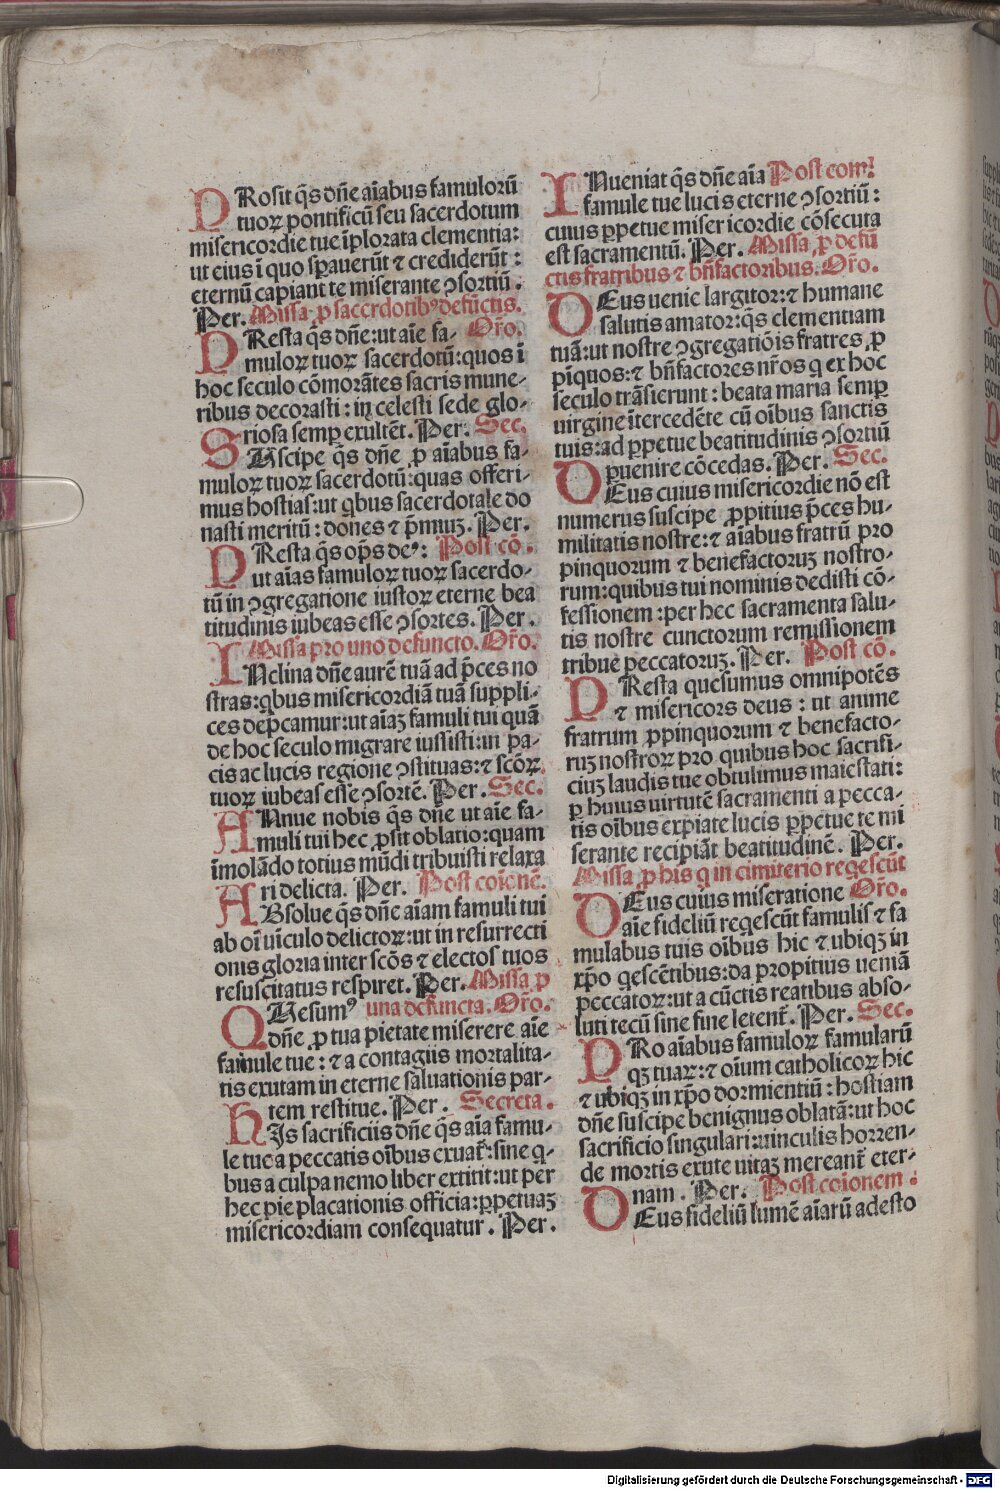 PRosit q̄s dn̄e aīabus famulorū
tuoꝝ pontificū seu sacerdotum
misericordie tue īplorata clementia:
ut eius ī quo sꝑauerūt ⁊ crediderūt:
eternū capiant te miserante ꝯsortiū.
Per. Missa ꝓ sacerdotibꝰ defūctis.
PResta q̄s dn̄e: ut aīe fa- Or̄o.
muloꝝ tuoꝝ sacerdotū: quos ī
hoc seculo cōmorātes sacris mune-
ribus decorasti: in celesti sede glo-
riosa semꝑ exultēt. Per. Sec.
SUscipe q̄s dn̄e ꝓ aīabus fa-
muloꝝ tuoꝝ sacerdotū: quas offeri-
mus hostias: ut qbus sacerdotale do
nasti meritū: dones ⁊ p̄miuꝫ. Per.
PResta q̄s op̄s deꝰ: Post cō.
ut aīas famuloꝝ tuoꝝ sacerdo-
tū in ꝯgregatione iustoꝝ eterne bea
titudinis iubeas esse ꝯsortes. Per.
Missa pro uno defuncto. Or̄o.
INclina dn̄e aurē tuā ad p̄ces no
stras: qbus misericordiā tuā suppli-
ces dep̄camur: ut aīaꝫ famuli tui quā
de hoc seculo migrare iussisti: in pa-
cis ac lucis regione ꝯstituas: ⁊ scōꝝ
tuoꝝ iubeas esse ꝯsortē. Per. Sec.
ANnue nobis q̄s dn̄e ut aīe fa-
muli tui hec ꝓsit oblatio: quam
īmolādo totius mūdi tribuisti relaxa
ri delicta. Per. Post coīonē.
ABsolue q̄s dn̄e aīam famuli tui
ab oī uīculo delictoꝝ: ut in resurrecti
onis gloria inter scōs ⁊ electos tuos
resuscitatus respiret. Per. Missa ꝓ
QUesumꝰ una defuncta. Or̄o.
dn̄e ꝓ tua pietate miserere aīe
famule tue: ⁊ a contagiis mortalita-
tis exutam in eterne saluationis par-
tem restitue. Per. Secreta.
HIs sacrificiis dn̄e q̄s aīa famu-
le tue a peccatis oībus exuat᷑: sine q-
bus a culpa nemo liber extitit: ut per
hec pie placationis officia: ꝑpetuaꝫ
misericordiam consequatur. Per.
INueniat q̄s dn̄e aīa Post com̄.
famule tue lucis eterne ꝯsortiū:
cuius ꝑpetue misericordie cōsecuta
est sacramentū. Per. Missa ꝓ defū
ctis fratribus ⁊ bn̄factoribus. Or̄o.
DEus uenie largitor: ⁊ humane
salutis amator: q̄s clementiam
tuā: ut nostre ꝯgregatiōis fratres ꝓ
pīquos: ⁊ bn̄factores nr̄os q ex hoc
seculo trāsierunt: beata maria semꝑ
uirgine ītercedēte cū oībus sanctis
tuis: ad ꝑpetue beatitudinis ꝯsortiū
ꝑuenire cōcedas. Per. Sec.
DEus cuius misericordie nō est
numerus suscipe ꝓpitius p̄ces hu-
militatis nostre: ⁊ aīabus fratrū pro
pinquorum ⁊ benefactoruꝫ nostro-
rum: quibus tui nominis dedisti cō-
fessionem: per hec sacramenta salu-
tis nostre cunctorum remissionem
tribue peccatoruꝫ. Per. Post cō.
PResta quesumus omnipotēs
⁊ misericors deus: ut anime
fratrum ꝓpinquorum ⁊ benefacto-
ruꝫ nostroꝝ pro quibus hoc sacrifi-
ciuꝫ laudis tue obtulimus maiestati:
ꝑ huius uirtutē sacramenti a pecca-
tis oībus expiate lucis ꝑpetue te mi
serante recipiāt beatitudinē. Per.
Missa ꝓ his q in cimiterio reqescūt
DEus cuius miseratione Or̄o.
aīe fideliū reqescūt famulis ⁊ fa
mulabus tuis oībus hic ⁊ ubiqꝫ in
xp̄o qescētibus: da propitius ueniā
peccatoꝝ: ut a cūctis reatibus abso-
luti tecū sine fine letent᷑. Per. Sec.
PRo aīabus famuloꝝ famularū
qꝫ tuaꝝ: ⁊ oīum catholicoꝝ hic
⁊ ubiqꝫ in xp̄o dormientiū: hostiam
dn̄e suscipe benignus oblatā: ut hoc
sacrificio singulari: uinculis horren-
de mortis exute uitaꝫ mereant᷑ eter-
nam. Per. Post coīonem:
DEus fideliū lumē aīarū adesto
Digitalisierung gefördert durch die Deutsche Forschungsgemeinschaft - DFG